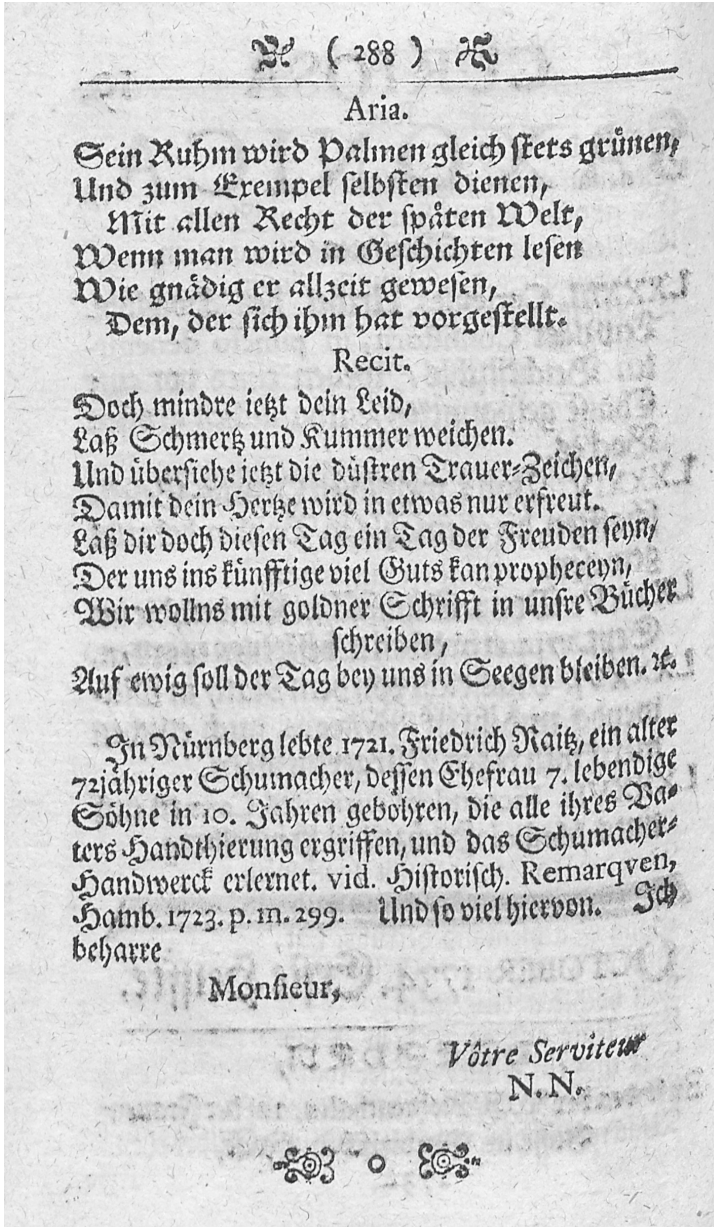 ( 288 )
Aria.
Sein Ruhm wird Palmen gleich stets grünen,
Und zum Exempel selbsten dienen,
Mit allen Recht der späten Welt,
Wenn man wird in Geschichten lesen
Wie gnädig er allzeit gewesen,
Dem, der sich ihm hat vorgestellt.
Recit.
Doch mindre ietzt dein Leid,
Laß Schmertz und Kummer weichen.
Und übersiehe ietzt die düstren Trauer-Zeichen,
Damit dein Hertze wird in etwas nur erfreut.
Laß dir doch diesen Tag ein Tag der Freuden seyn,
Der uns ins künfftige viel Guts kan propheceyn,
Wir wollns mit goldner Schrifft in unsre Bücher
schreiben,
Auf ewig soll der Tag bey uns in Seegen bleiben. ꝛc.
In Nürnberg lebte 1721. Friedrich Raitz, ein alter
72jähriger Schumacher, dessen Ehefrau 7. lebendige
Söhne in 10. Jahren gebohren, die alle ihres Va-
ters Handthierung ergriffen, und das Schumacher-
Handwerck erlernet. vid. Historisch. Remarqven,
Hamb. 1723. p. m. 299. Und so viel hiervon. Ich
beharre
Monsieur,
Vôtre Serviteur
N. N.